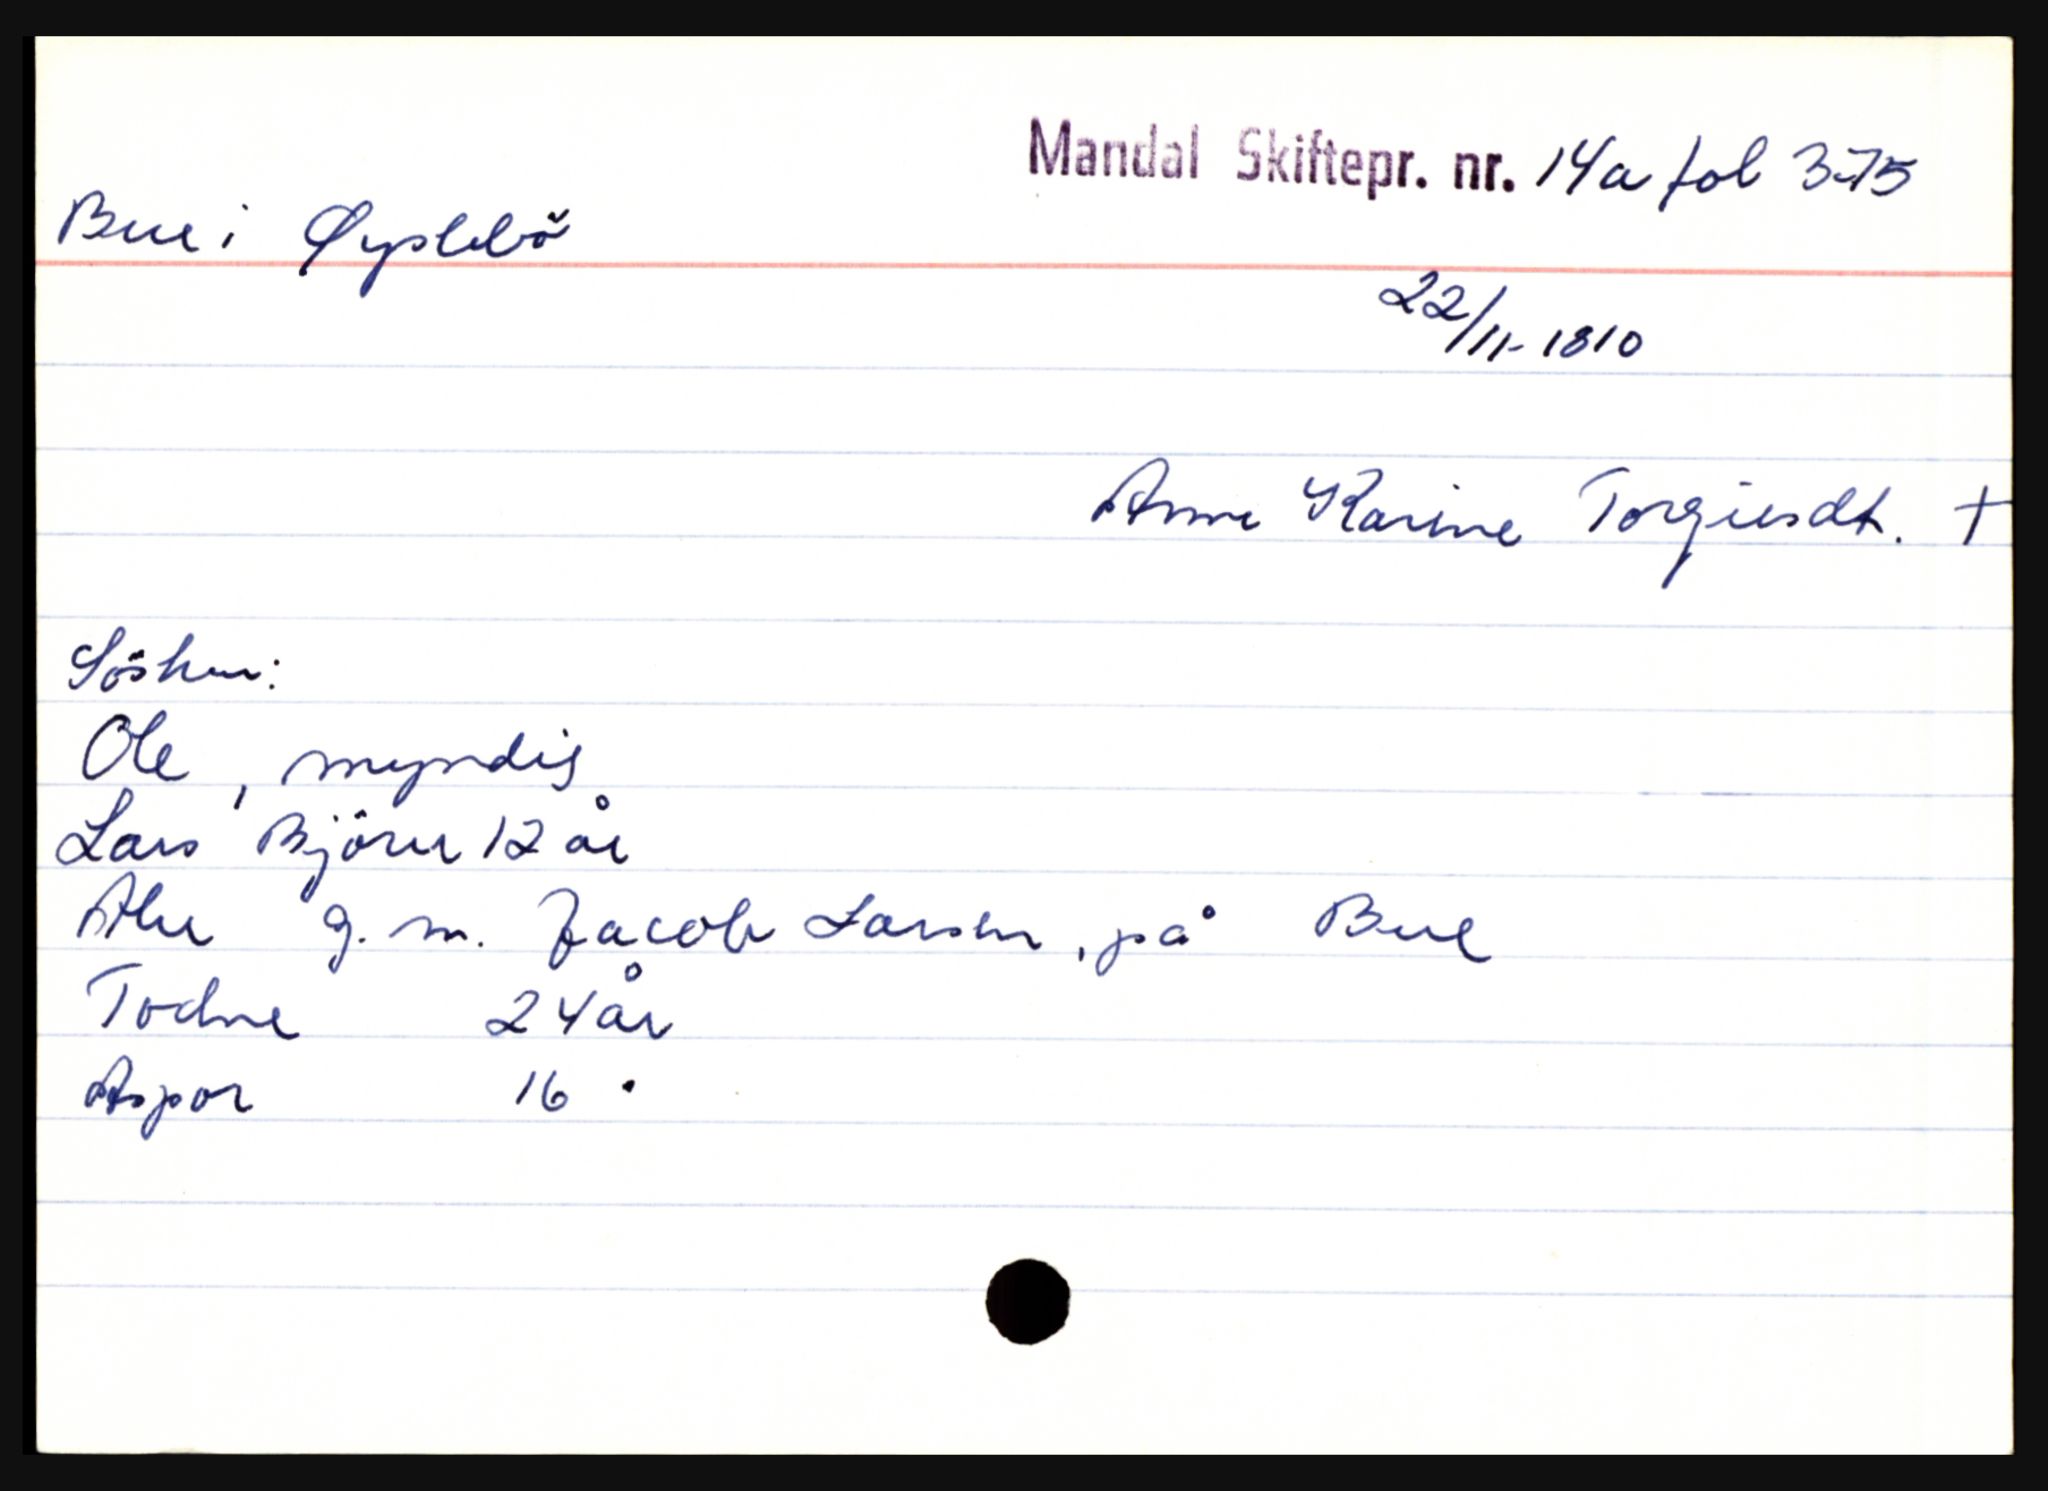 Mandal Skiftepr. nr. 14a fol 375
Bue i Øyslebö
22/11-1810
Anne Karine Torgiesdt. †
Sösken:
Ole, myndig
Lars Björn 12 år
Ale g. m. Jacob Larsen, på Bue
Todne 24 år
Aspor 16 •